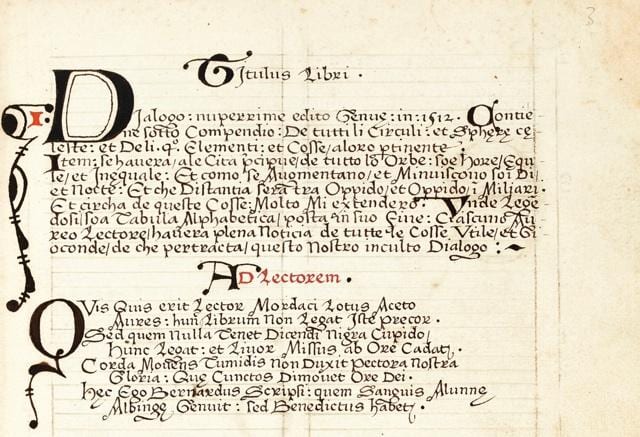 3
Titulus Libri.
1.
Dialogo: nuperrime edito Genue: in: 1512. Contie
ne sotto Compendio: De tutti li Circuli: et Sphere ce
leste: et De li. q°. Elementi: et Cosse, aloro ptinente:
Item: se hauera, ale Cita pcipue, de tutto lo Orbe: soe Hore, Equ
le, et Inequale: Et como, se Augmentano, et Minuiscono soi Di.
et Nocte: Et che Distantia sera tra Oppido, et Oppido, i Miliari.
Et circha de queste Cosse, Molto Mi extendero. Unde Lege
dosi, soa Tabula Alphabetica, posta in suo Fine: Ciascuno Au
reo Lectore, hauera plena Noticia de tutte le Cosse Utile, et Gi
oconde, de che pertracta, questo Nostro inculto Dialogo:~
AD Lectorem.
QVis Quis erit Lector Mordaci Lotus Aceto
Aures: hun Librum Non Legat Iste precor.
Sed quem Nulla Tenet Dicendi Nigra Cupido,
Hunc Legat: et Livor Missus ab Ore Cadat.
Corda Movens Tumidis Non Duxit Pectora Nostra
Gloria: Que Cunctos Dimovet Ore Dei.
Hec Ego Bernardus Scripsi: quem Sanguis Alumne
Albinge Genuit: sed Benedictus habet.